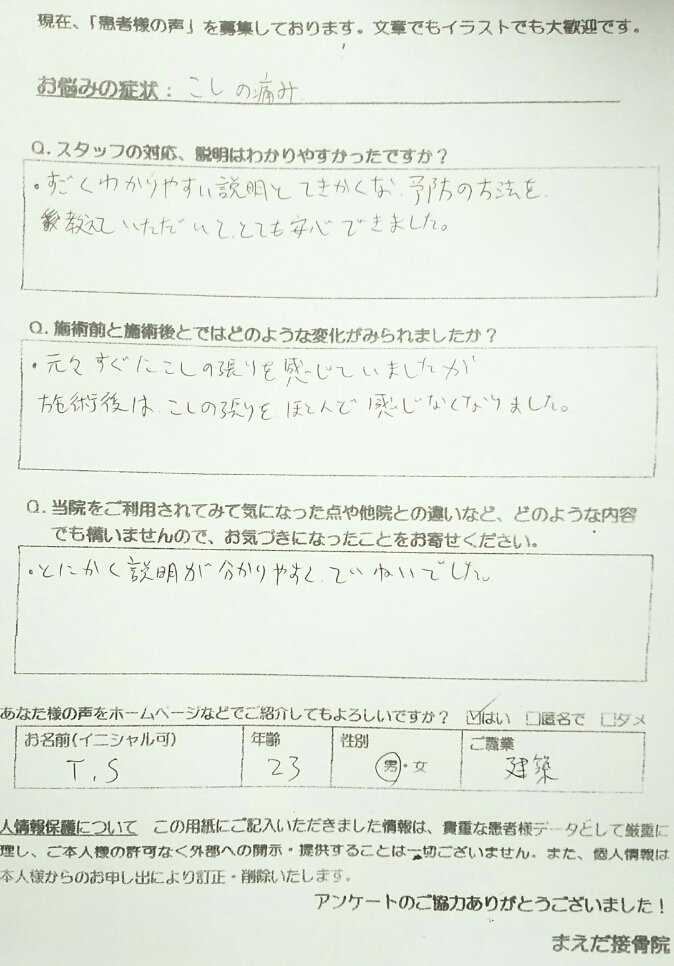 現在、「患者様の声」を募集しております。文章でもイラストでも大歓迎です。
お悩みの症状： こしの痛み
Q. スタッフの対応、説明はわかりやすかったですか？
・すごくわかりやすい説明とてきかくな、予防の方法を
教えていただいて、とても安心できました。
Q. 施術前と施術後とではどのような変化がみられましたか？
・元々すぐにこしの張りを感じていましたが
施術後は、こしの張りを、ほとんど感じなくなりました。
Q. 当院をご利用されてみて気になった点や他院との違いなど、どのような内容
でも構いませんので、お気づきになったことをお寄せください。
・とにかく説明が分かりやすく、ていねいでした。
あなた様の声をホームページなどでご紹介してもよろしいですか？ ☑はい □匿名で □ダメ
お名前(イニシャル可) 年齢 性別 ご職業
T.S 23 男・女 建築
人情報保護について この用紙にご記入いただきました情報は、貴重な患者様データとして厳重に
理し、ご本人様の許可なく外部への開示・提供することは一切ございません。また、個人情報は
本人様からのお申し出により訂正・削除いたします。
アンケートのご協力ありがとうございました！
まえだ接骨院